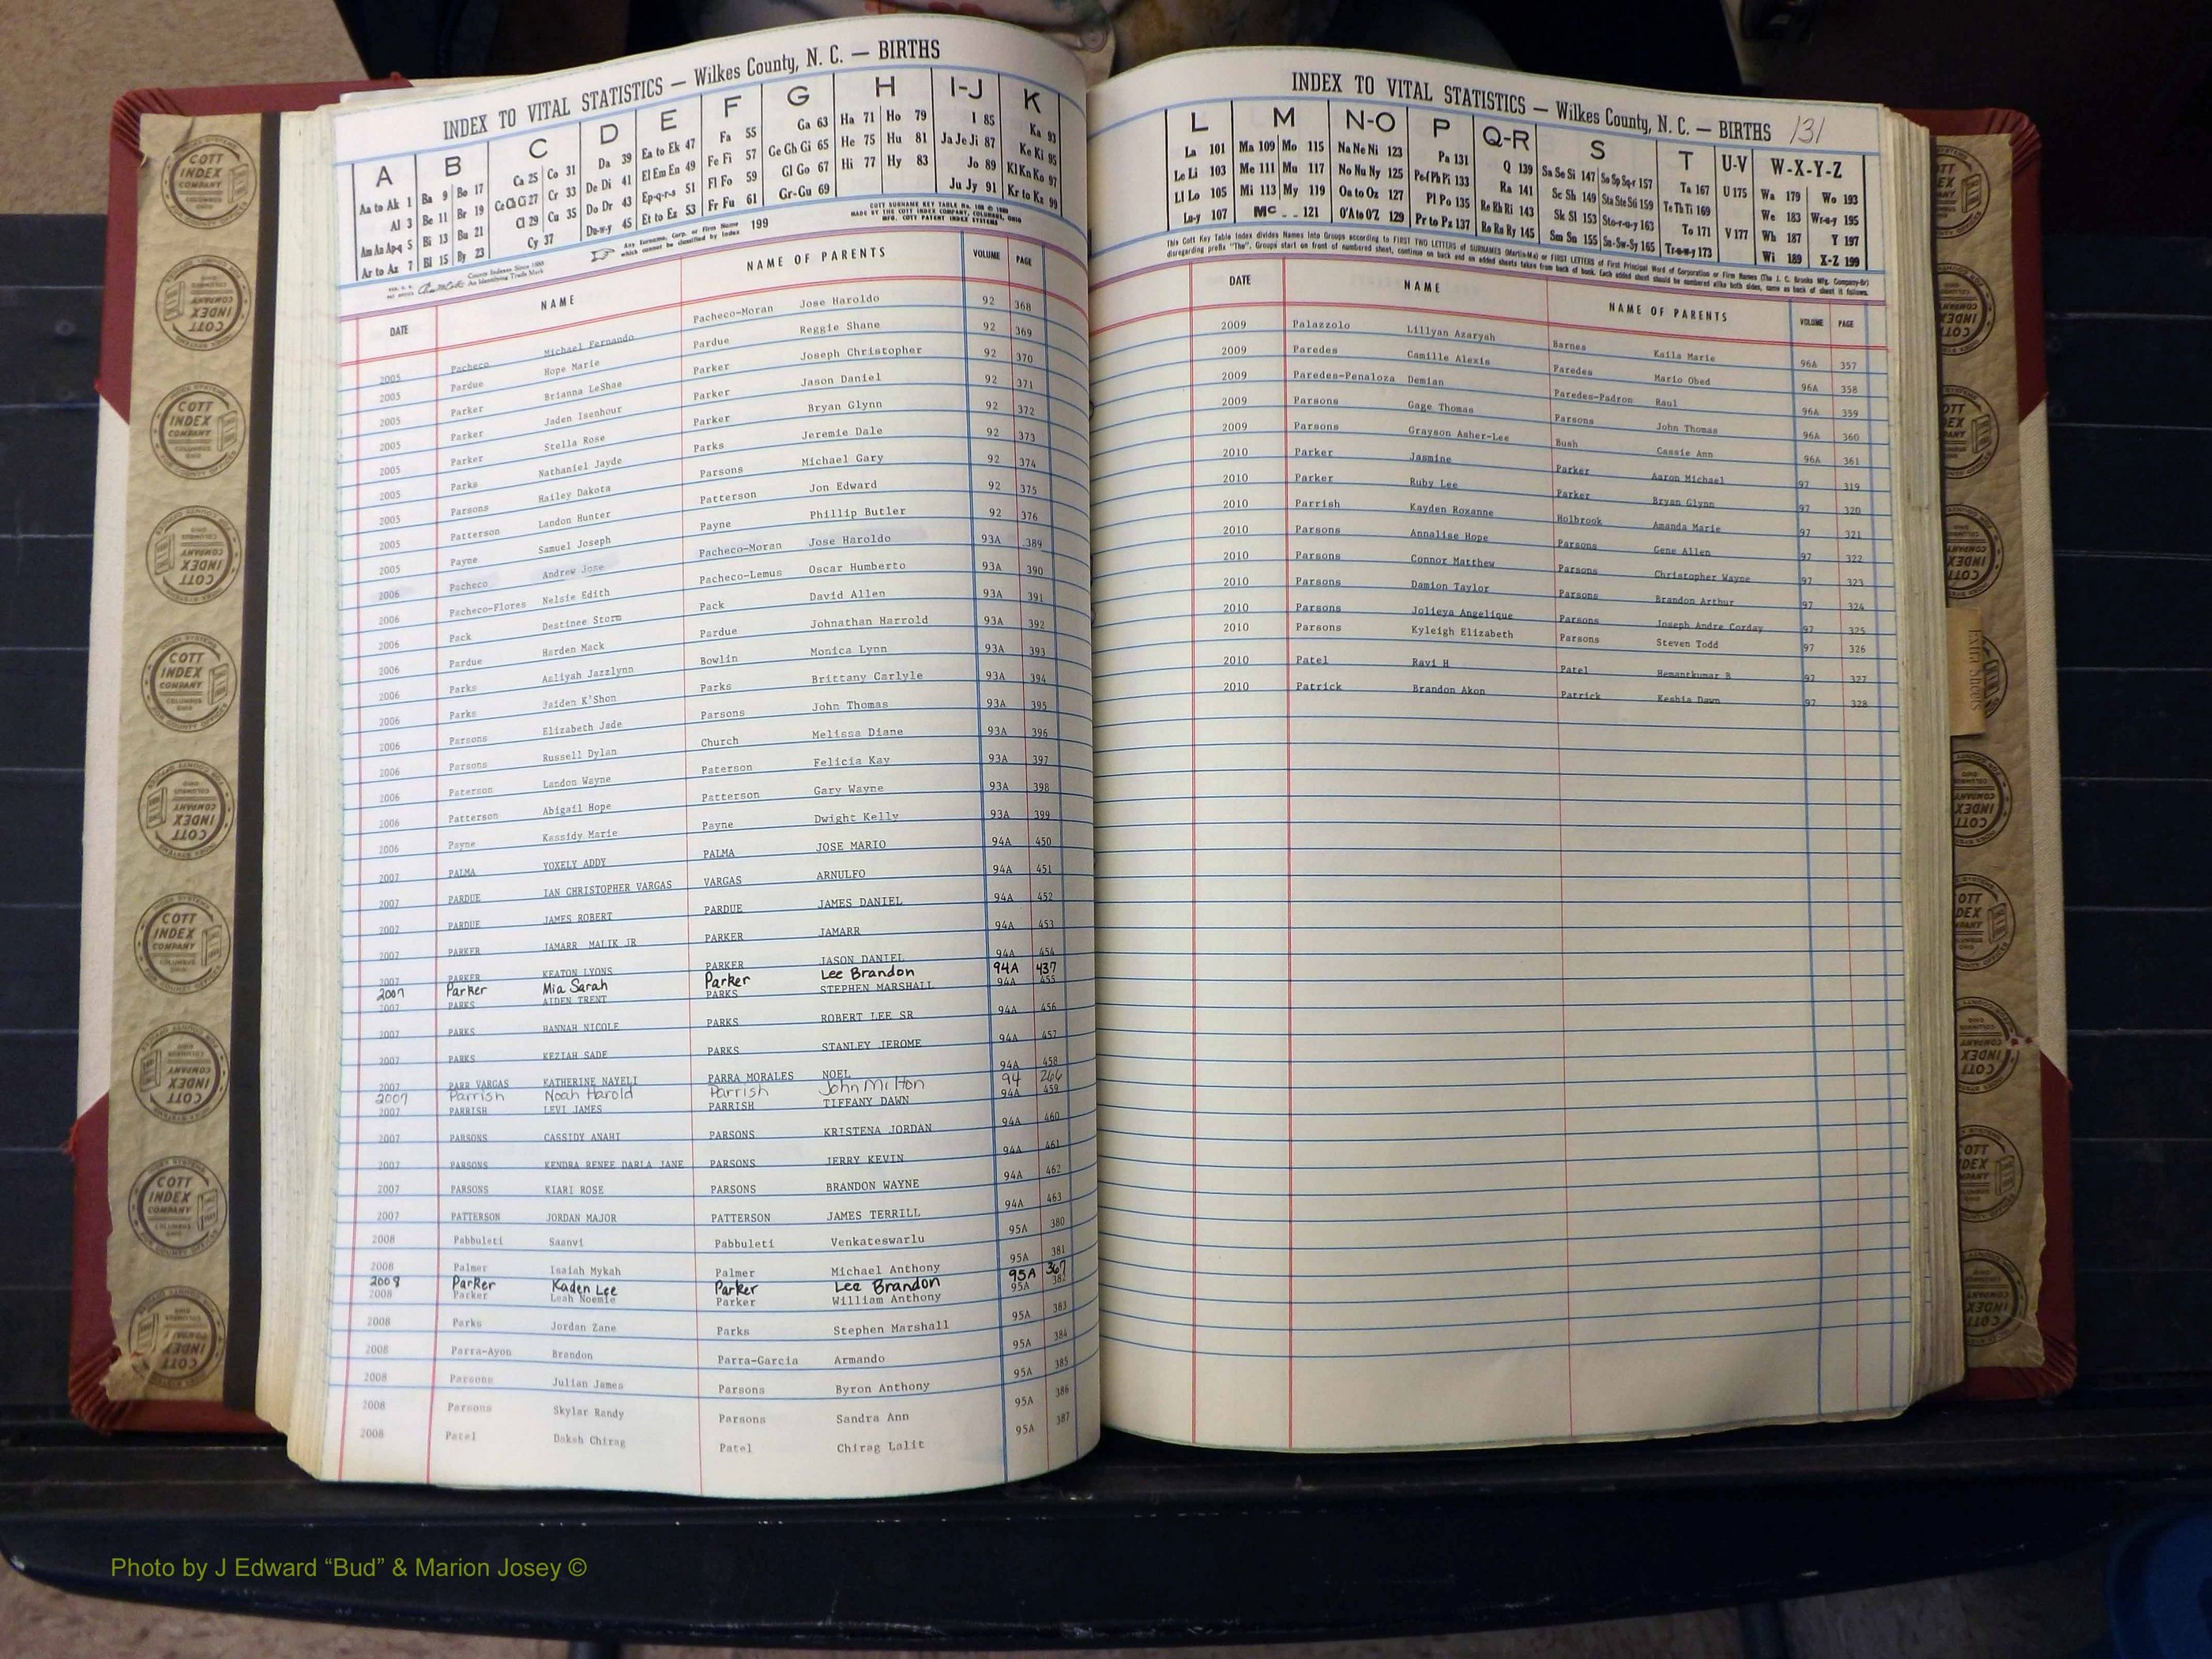 INDEX TO VITAL STATISTICS — Wilkes County, N. C. — BIRTHS
A B C D E F G H I-J K
Aa to Ak 1 Ba 9 Bo 17 Ca 25 Co 31 Da 39 Ea to Ek 47 Fa 55 Ga 63 Ha 71 Ho 79 I 85 Ka 93
Al 3 Be 11 Br 19 Ce Ch Ci 27 Cr 33 De Di 41 El Em En 49 Fe Fi 57 Ge Gh Gi 65 He 75 Hu 81 Ja Je Ji 87 Ke Ki 95
Am An Ap-q 5 Bi 13 Bu 21 Cl 29 Cu 35 Do Dr 43 Ep-q-r-s 51 Fl Fo 59 Gl Go 67 Hi 77 Hy 83 Jo 89 Kl Kn Ko 97
Ar to Az 7 Bl 15 By 23 Cy 37 Du-w-y 45 Et to Ez 53 Fr Fu 61 Gr-Gu 69 Ju Jy 91 Kr to Kz 99
Any Surname, Corp. or Firm Name which cannot be classified by Index 199
DATE NAME NAME OF PARENTS VOLUME PAGE
2005 Pacheco Michael Fernando Pacheco-Moran Jose Haroldo 92 368
2005 Pardue Hope Marie Pardue Reggie Shane 92 369
2005 Parker Brianna LeShae Parker Joseph Christopher 92 370
2005 Parker Jaden Isenhour Parker Jason Daniel 92 371
2005 Parker Stella Rose Parker Bryan Glynn 92 372
2005 Parks Nathaniel Jayde Parks Jeremie Dale 92 373
2005 Parsons Hailey Dakota Parsons Michael Gary 92 374
2005 Patterson Landon Hunter Patterson Jon Edward 92 375
2005 Payne Samuel Joseph Payne Phillip Butler 92 376
2006 Pacheco Andrew Jose Pacheco-Moran Jose Haroldo 93A 389
2006 Pacheco-Flores Nelsie Edith Pacheco-Lemus Oscar Humberto 93A 390
2006 Pack Destinee Storm Pack David Allen 93A 391
2006 Pardue Harden Mack Pardue Johnathan Harrold 93A 392
2006 Parks Aaliyah Jazzlynn Bowlin Monica Lynn 93A 393
2006 Parks Jaiden K'Shon Parks Brittany Carlyle 93A 394
2006 Parsons Elizabeth Jade Parsons John Thomas 93A 395
2006 Parsons Russell Dylan Church Melissa Diane 93A 396
2006 Paterson Landon Wayne Paterson Felicia Kay 93A 397
2006 Patterson Abigail Hope Patterson Gary Wayne 93A 398
2006 Payne Kassidy Marie Payne Dwight Kelly 93A 399
2007 PALMA YOXELY ADDY PALMA JOSE MARIO 94A 450
2007 PARDUE IAN CHRISTOPHER VARGAS VARGAS ARNULFO 94A 451
2007 PARDUE JAMES ROBERT PARDUE JAMES DANIEL 94A 452
2007 PARKER JAMARR MALIK JR PARKER JAMARR 94A 453
2007 PARKER KEATON LYONS PARKER JASON DANIEL 94A 454
2007 Parker Mia Sarah Parker Lee Brandon 94A 437
2007 PARKS AIDEN TRENT PARKS STEPHEN MARSHALL 94A 455
2007 PARKS HANNAH NICOLE PARKS ROBERT LEE SR 94A 456
2007 PARKS KEZIAH SADE PARKS STANLEY JEROME 94A 457
2007 PARR VARGAS KATHERINE NAYELI PARRA MORALES NOEL 94A 458
2007 Parrish Noah Harold Parrish John Milton 94 266
2007 PARRISH LEVI JAMES PARRISH TIFFANY DAWN 94A 459
2007 PARSONS CASSIDY ANAHI PARSONS KRISTENA JORDAN 94A 460
2007 PARSONS KENDRA RENEE DARLA JANE PARSONS JERRY KEVIN 94A 461
2007 PARSONS KIARI ROSE PARSONS BRANDON WAYNE 94A 462
2007 PATTERSON JORDAN MAJOR PATTERSON JAMES TERRILL 94A 463
2008 Pabbuleti Saanvi Pabbuleti Venkateswarlu 95A 380
2008 Palmer Isaiah Mykah Palmer Michael Anthony 95A 381
2008 Parker Kaden Lee Parker Lee Brandon 95A 367
2008 Parker Leah Noemie Parker William Anthony 95A 382
2008 Parks Jordan Zane Parks Stephen Marshall 95A 383
2008 Parra-Ayon Brandon Parra-Garcia Armando 95A 384
2008 Parsons Julian James Parsons Byron Anthony 95A 385
2008 Parsons Skylar Randy Parsons Sandra Ann 95A 386
2008 Patel Daksh Chirag Patel Chirag Lalit 95A 387
INDEX TO VITAL STATISTICS — Wilkes County, N. C. — BIRTHS 131
L M N-O P Q-R S T U-V W-X-Y-Z
La 101 Ma 109 Mo 115 Na Ne Ni 123 Pa 131 Q 139 Sa Se Si 147 So Sp Sq-r 157 Ta 167 U 175 Wa 179 Wo 193
Le Li 103 Me 111 Mu 117 No Nu Ny 125 Pe-f Ph Pi 133 Ra 141 Sc Sh 149 Sta Ste Sti 159 Te Th Ti 169 We 183 Wr-u-y 195
Ll Lo 105 Mi 113 My 119 Oa to Oz 127 Pl Po 135 Re Rh Ri 143 Sk Sl 153 Sto-r-u-y 163 To 171 V 177 Wh 187 Y 197
Lu-y 107 Mc 121 O'A to O'Z 129 Pr to Pz 137 Ro Ru Ry 145 Sm Sn 155 Su-Sw-Sy 165 Tr-u-w-y 173 Wi 189 X-Z 199
DATE NAME NAME OF PARENTS VOLUME PAGE
2009 Palazzolo Lillyan Azaryah Barnes Kaila Marie 96A 357
2009 Paredes Camille Alexis Paredes Mario Obed 96A 358
2009 Paredes-Penaloza Demian Paredes-Padron Raul 96A 359
2009 Parsons Gage Thomas Parsons John Thomas 96A 360
2009 Parsons Grayson Asher-Lee Bush Cassie Ann 96A 361
2010 Parker Jasmine Parker Aaron Michael 97 319
2010 Parker Ruby Lee Parker Bryan Glynn 97 320
2010 Parrish Kayden Roxanne Holbrook Amanda Marie 97 321
2010 Parsons Annalise Hope Parsons Gene Allen 97 322
2010 Parsons Connor Matthew Parsons Christopher Wayne 97 323
2010 Parsons Damion Taylor Parsons Brandon Arthur 97 324
2010 Parsons Jolieya Angelique Parsons Joseph Andre Corday 97 325
2010 Parsons Kyleigh Elizabeth Parsons Steven Todd 97 326
2010 Patel Ravi H Patel Hemantkumar B 97 327
2010 Patrick Brandon Akon Patrick Keshia Dawn 97 328
COTT INDEX COMPANY COLUMBUS OHIO
Photo by J Edward “Bud” & Marion Josey ©